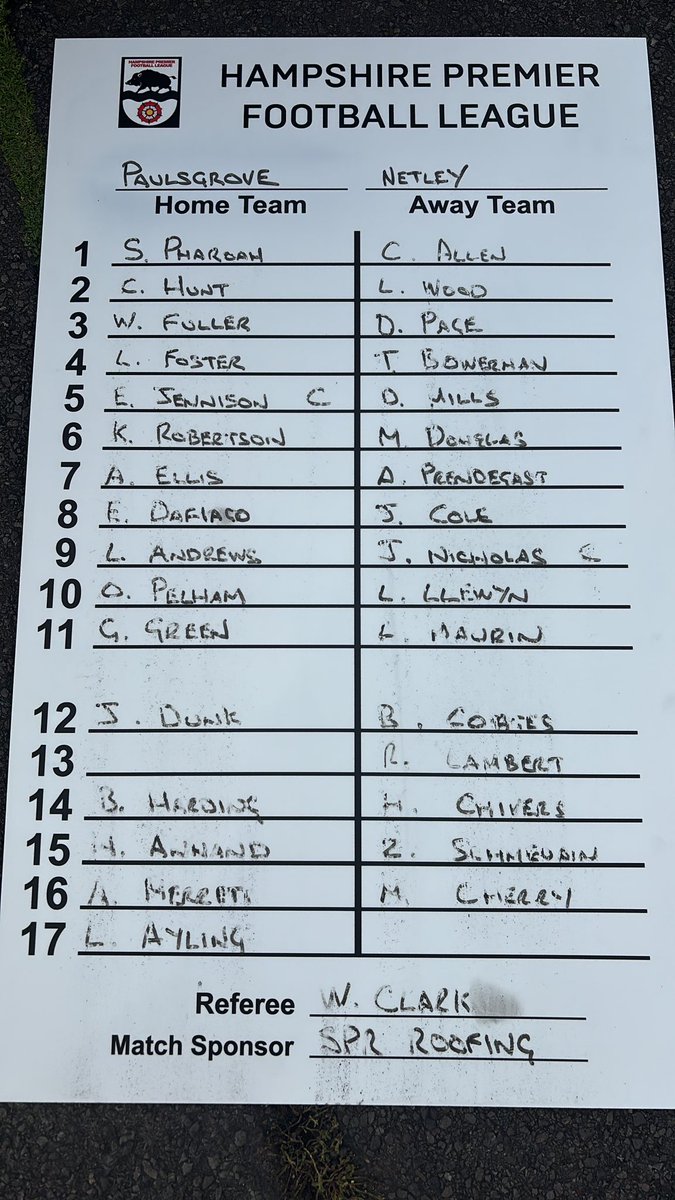 HAMPSHIRE PREMIER FOOTBALL LEAGUE
HAMPSHIRE PREMIER
FOOTBALL LEAGUE
PAULSGROVE NETLEY
Home Team Away Team
1 S. PHAROAH C. ALLEN
2 C. HUNT L. WOOD
3 W. FULLER D. PAGE
4 L. FOSTER T. BOWERMAN
5 E. JENNISON C D. MILLS
6 K. ROBERTSON M. DOUGLAS
7 A. ELLIS A. PRENDEGAST
8 E. J. COLE
9 L. ANDREWS J. NICHOLAS C
10 O. PELHAM L. LLEWYN
11 G. GREEN L. MAURIN
12 J. DUNK B. COATES
13 R. LAMBERT
14 B. HARDING H. CHIVERS
15 H. ANNAND Z.
16 A. M. CHERRY
17 L. AYLING
Referee W. CLARK
Match Sponsor SPR ROOFING